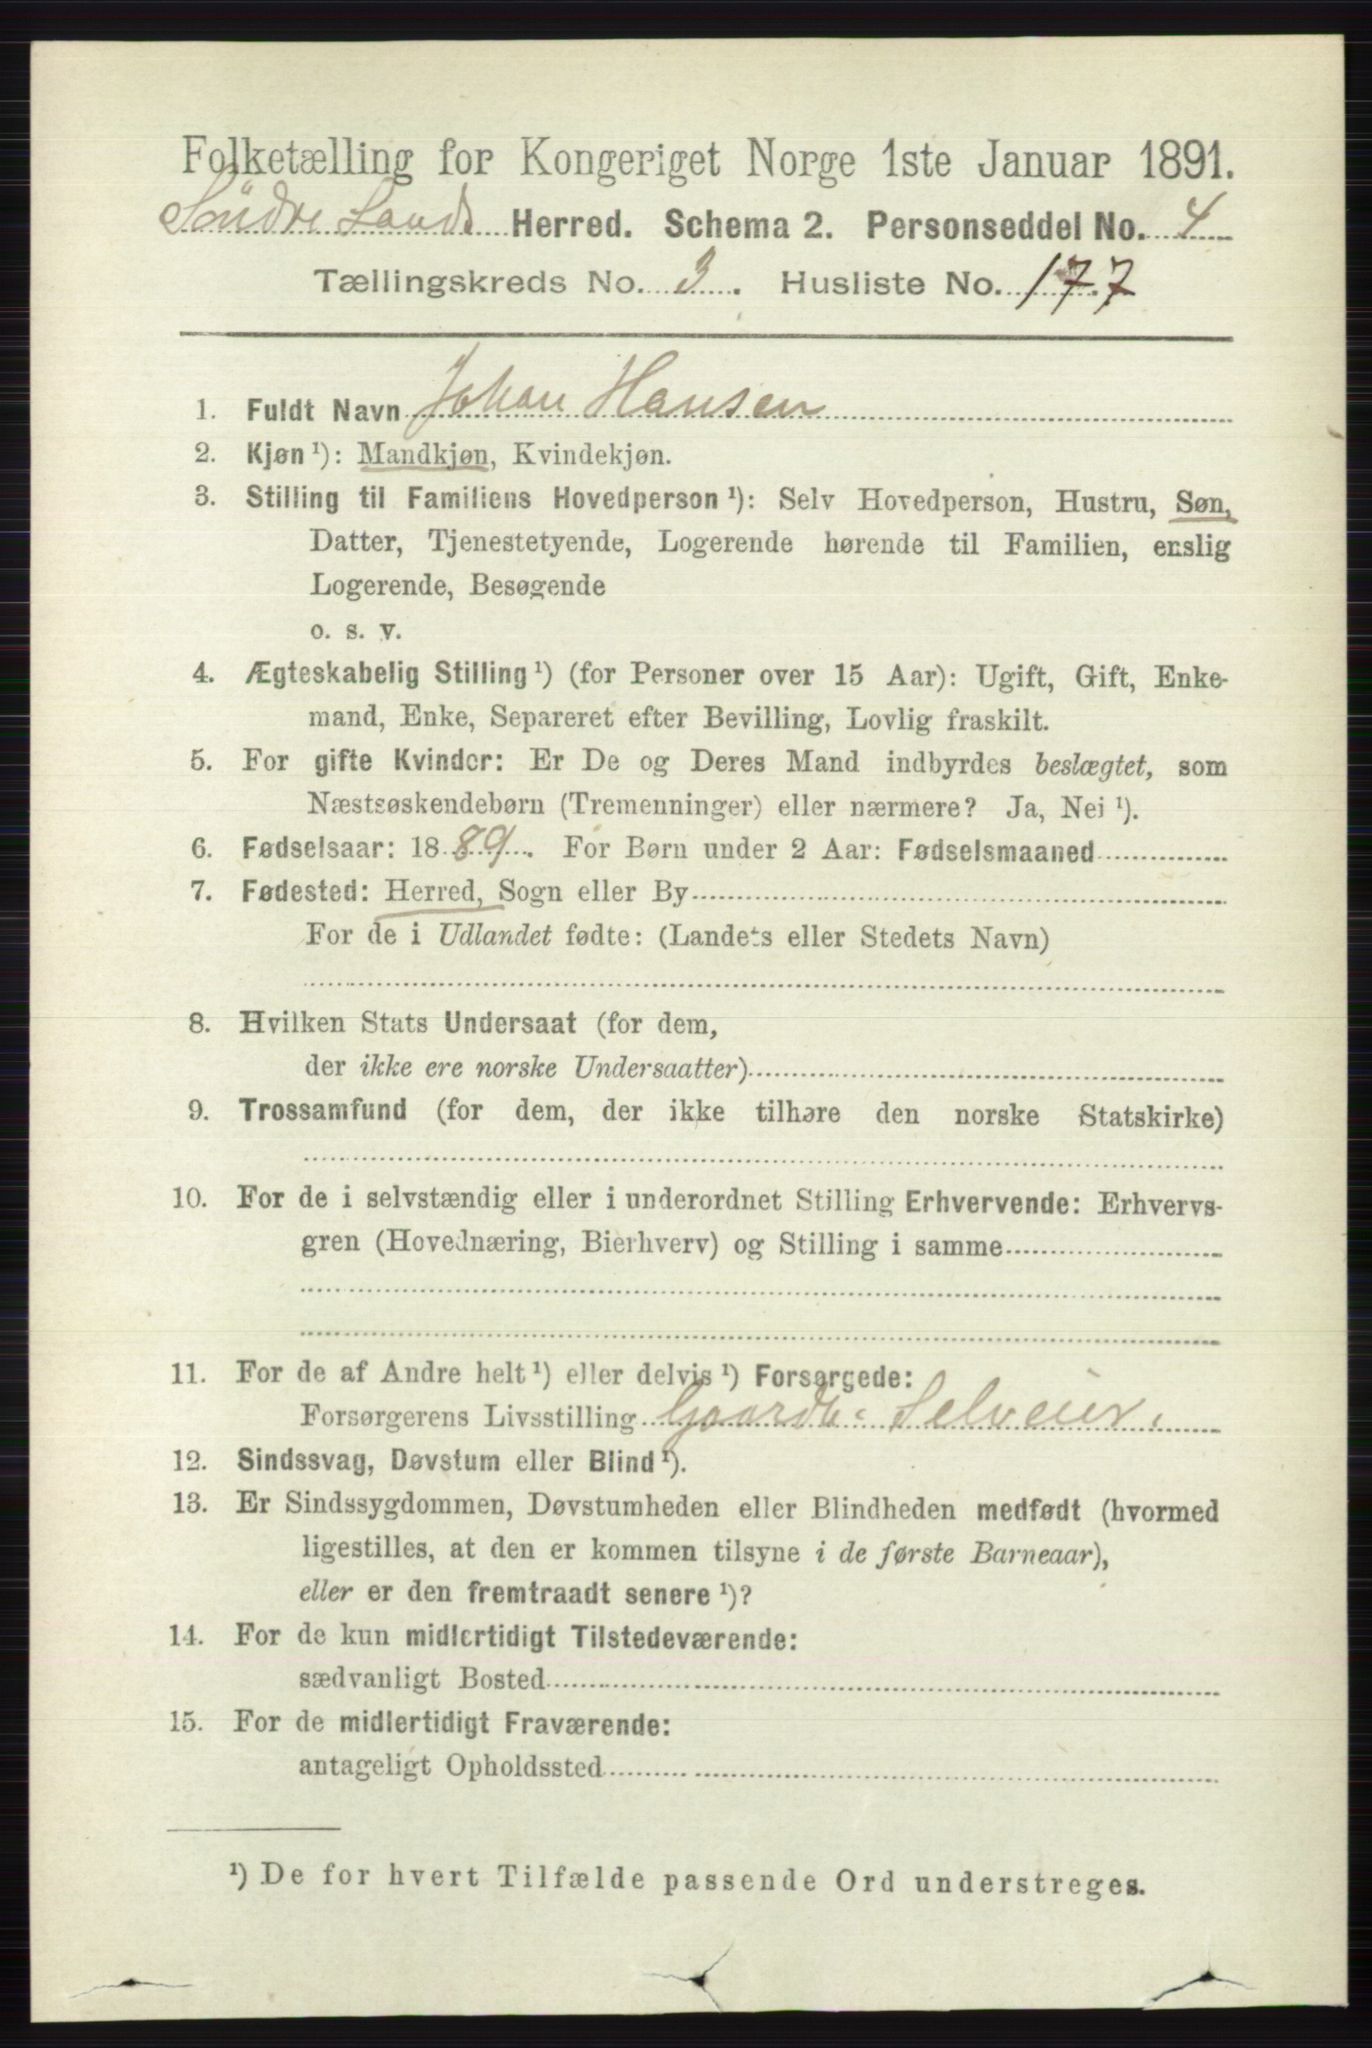 Folketælling for Kongeriget Norge 1ste Januar 1891.
Søndre Lands Herred. Schema 2. Personseddel No. 4
Tællingskreds No. 3. Husliste No. 177
1. Fuldt Navn Johan Hansen
2. Kjøn ¹): Mandkjøn, Kvindekjøn.
3. Stilling til Familiens Hovedperson ¹): Selv Hovedperson, Hustru, Søn,
Datter, Tjenestetyende, Logerende hørende til Familien, enslig
Logerende, Besøgende
o. s. v.
4. Ægteskabelig Stilling ¹) (for Personer over 15 Aar): Ugift, Gift, Enke-
mand, Enke, Separeret efter Bevilling, Lovlig fraskilt.
5. For gifte Kvinder: Er De og Deres Mand indbyrdes beslægtet, som
Næstsøskendebørn (Tremenninger) eller nærmere? Ja, Nei ¹).
6. Fødselsaar: 1889. For Børn under 2 Aar: Fødselsmaaned
7. Fødested: Herred, Sogn eller By
For de i Udlandet fødte: (Landets eller Stedets Navn)
8. Hvilken Stats Undersaat (for dem,
der ikke ere norske Undersaatter)
9. Trossamfund (for dem, der ikke tilhøre den norske Statskirke)
10. For de i selvstændig eller i underordnet Stilling Erhvervende: Erhvervs-
gren (Hovednæring, Bierhverv) og Stilling i samme
11. For de af Andre helt ¹) eller delvis ¹) Forsørgede:
Forsørgerens Livsstilling Gaardb. Selveier.
12. Sindssvag, Døvstum eller Blind ¹).
13. Er Sindssygdommen, Døvstumheden eller Blindheden medfødt (hvormed
ligestilles, at den er kommen tilsyne i de første Barneaar),
eller er den fremtraadt senere ¹)?
14. For de kun midlertidigt Tilstedeværende:
sædvanligt Bosted
15. For de midlertidigt Fraværende:
antageligt Opholdssted
¹) De for hvert Tilfælde passende Ord understreges.